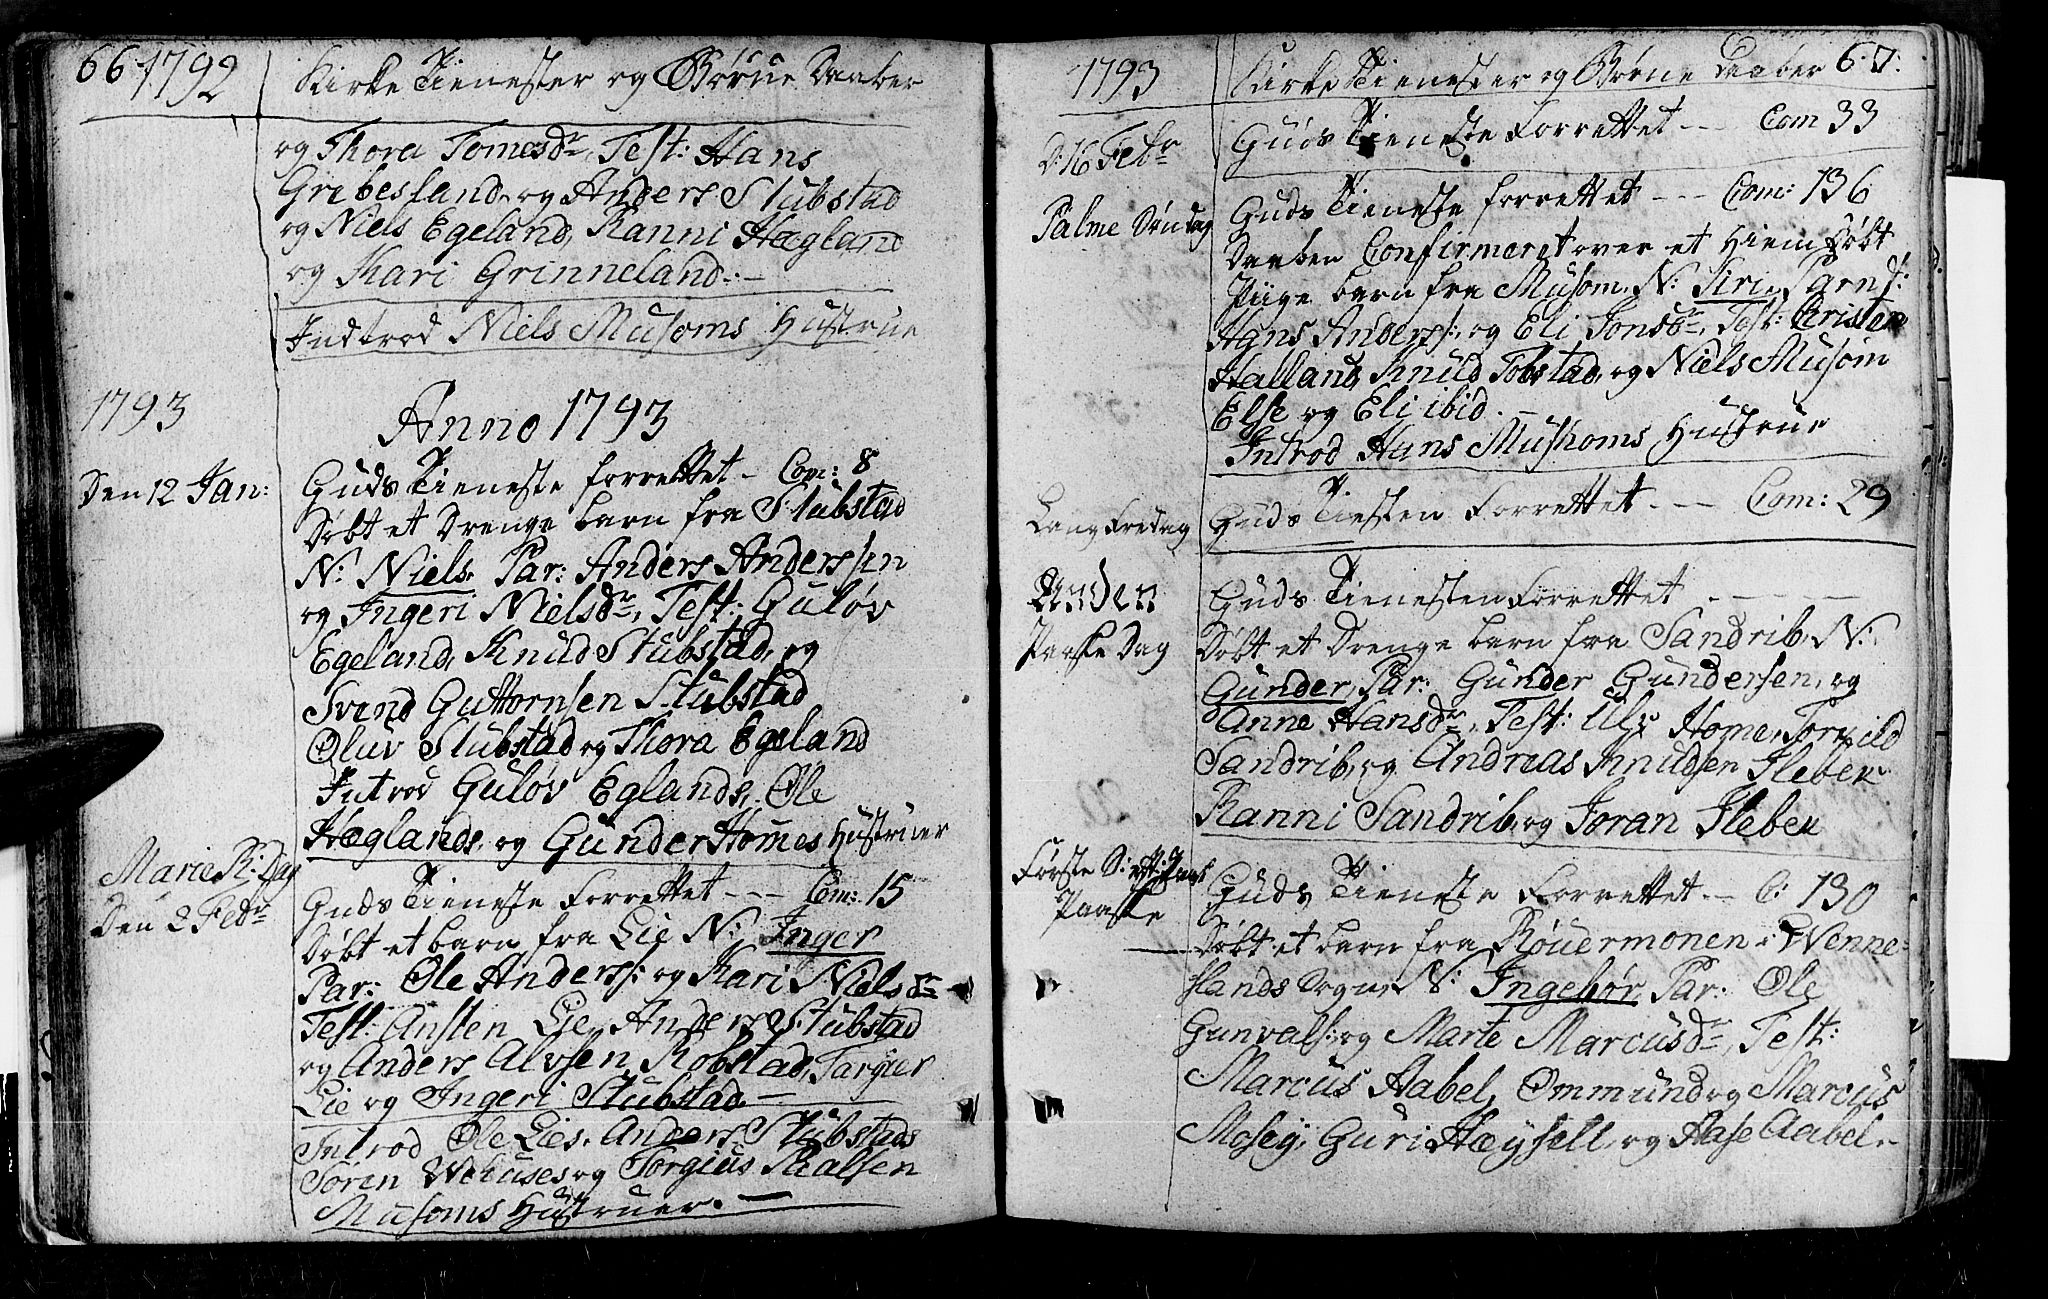 66 1792
Kirke Tienester og Børne Daaber
og Thora Tomesdr, Test: Hans
Gribesland og Anders Stubstad
og Niels Egeland, Ranni Hægland
og Kari Grinneland:-
Indtrod Niels Musoms Hustrue
1793
Anno 1793
Den 12 Jan:
Guds Tieneste forrettet - Com: 8
Døbt et Drenge barn fra Stubstad
N: Niels. Par: Anders Anderssen
og Ingeri Nielsdr, Test: Guløv
Egeland, Knud Stubstad, og
Svend Guttormsen Stubstad
Oluv Stubstad og Thora Egeland
Introd Guløv Eglands, Ole
Hæglands, og Gunder Homes Hustruer
Marie R: Dag
Den 2 Febr
Guds Tieneste Forrettet --- Com: 15
Døbt et barn fra Lie N: Inger
Par: Ole Anderss: og Kari Nielsdr
Test: Ansten Lie, Anders Stubstad
og Anders Alvsen Robstad, Targier
Lie og Ingeri Stubstad -
Introd Ole Lies, Anders Stubstads
Søren og Torgius
Musoms Hustruer. -
1793
Kirke Tienester og Børne Daaber 67.
D: 16 Febr
Guds Tieneste Forrettet --- Com 33
Palme Søndag
Guds Tieneste forrettet --- Com: 136
Daaben Confirmeret over et Hiem Døbt
Piige barn fra Musom. N: Siri, Par:
Hans Anderss: og Eli Jonsdr, Test: Kristen
Halland, Knud Tobstad, og Niels Musom
Else og Eli ibid. -
Introd Hans Mushoms Hustrue
Lang Fredag
Guds Tiesten Forrettet --- Com: 29
Anden
Paaske Dag
Guds Tienesten Forrettet - - - -
Døbt et Drenge barn fra Sandrib, N:
Gunder, Par: Gunder Gundersen, og
Anne Hansdr, Test: Ulv Home, Torkild
Sandrib, og Andreas Knudsen Flebek
Ranni Sandrib, og Joran Flebek
Første S:
Paaske
Guds Tieneste Forrettet -- C: 130
Døbt et barn fra Røuermonen i Wenne-
slands Sogn, N: Ingebor Par: Ole
Gunvals: og Marte Marcusdr, Test:
Marcus Aabel, Ommund og Marcus
Mosey, Guri Høysell, og Aase Aabel.